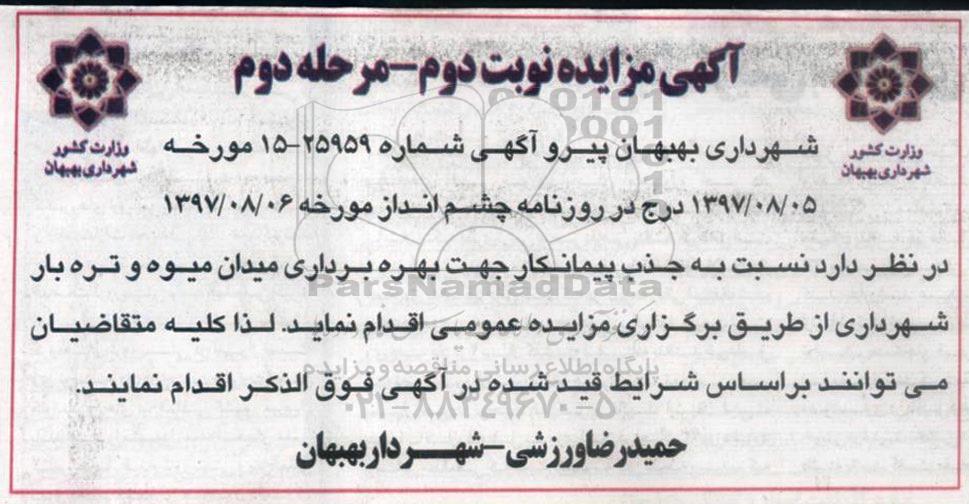 آگهی مزایده نوبت دوم-مرحله دوم
وزارت کشور
شهرداری بهبهان
وزارت کشور
شهرداری بهبهان
شهرداری بهبهان پیرو آگهی شماره ۲۵۹۵۹-۱۵ مورخه
۱۳۹۷/۰۸/۰۵ درج در روزنامه چشم انداز مورخه ۱۳۹۷/۰۸/۰۶
در نظر دارد نسبت به جذب پیمانکار جهت بهره برداری میدان میوه و تره بار
ParsNamadData
شهرداری از طریق برگزاری مزایده عمومی اقدام نماید. لذا کلیه متقاضیان
پایگاه اطلاع رسانی مناقصه و مزایده
می توانند براساس شرایط قید شده در آگهی فوق الذکر اقدام نمایند.
۰۲۱-۸۸۳۴۹۶۷۰-۵
حمیدرضا ورزشی-شهردار بهبهان